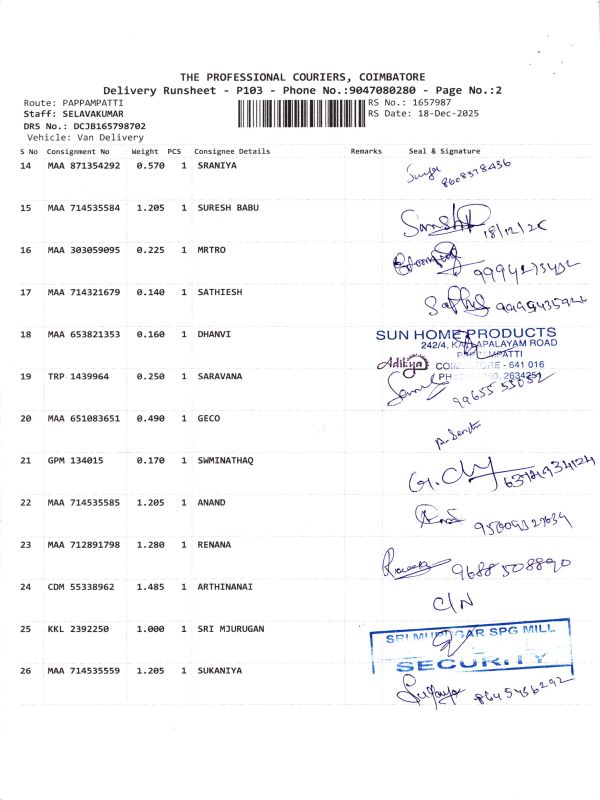 THE PROFESSIONAL COURIERS, COIMBATORE
Delivery Runsheet - P103 - Phone No.:9047080280 - Page No.:2
Route: PAPPAMPATTI
RS No.: 1657987
Staff: SELAVAKUMAR
RS Date: 18-Dec-2025
DRS No.: DCJB165798702
Vehicle: Van Delivery
S No Consignment No Weight PCS Consignee Details Remarks Seal & Signature
14 MAA 871354292 0.570 1 SRANIYA
15 MAA 714535584 1.205 1 SURESH BABU
18/12/25
16 MAA 303059095 0.225 1 MRTRO
17 MAA 714321679 0.140 1 SATHIESH
18 MAA 653821353 0.160 1 DHANVI
SUN HOME PRODUCTS
242/4, PALAYAM ROAD
19 TRP 1439964 0.250 1 SARAVANA
Aditya
- 641 016
2634251
20 MAA 651083651 0.490 1 GECO
21 GPM 134015 0.170 1 SWMINATHAQ
22 MAA 714535585 1.205 1 ANAND
23 MAA 712891798 1.280 1 RENANA
9688508890
24 CDM 55338962 1.485 1 ARTHINANAI
C/N
25 KKL 2392250 1.000 1 SRI MJURUGAN
SRI MURUGAR SPG MILL
SECURITY
26 MAA 714535559 1.205 1 SUKANIYA
8645456292